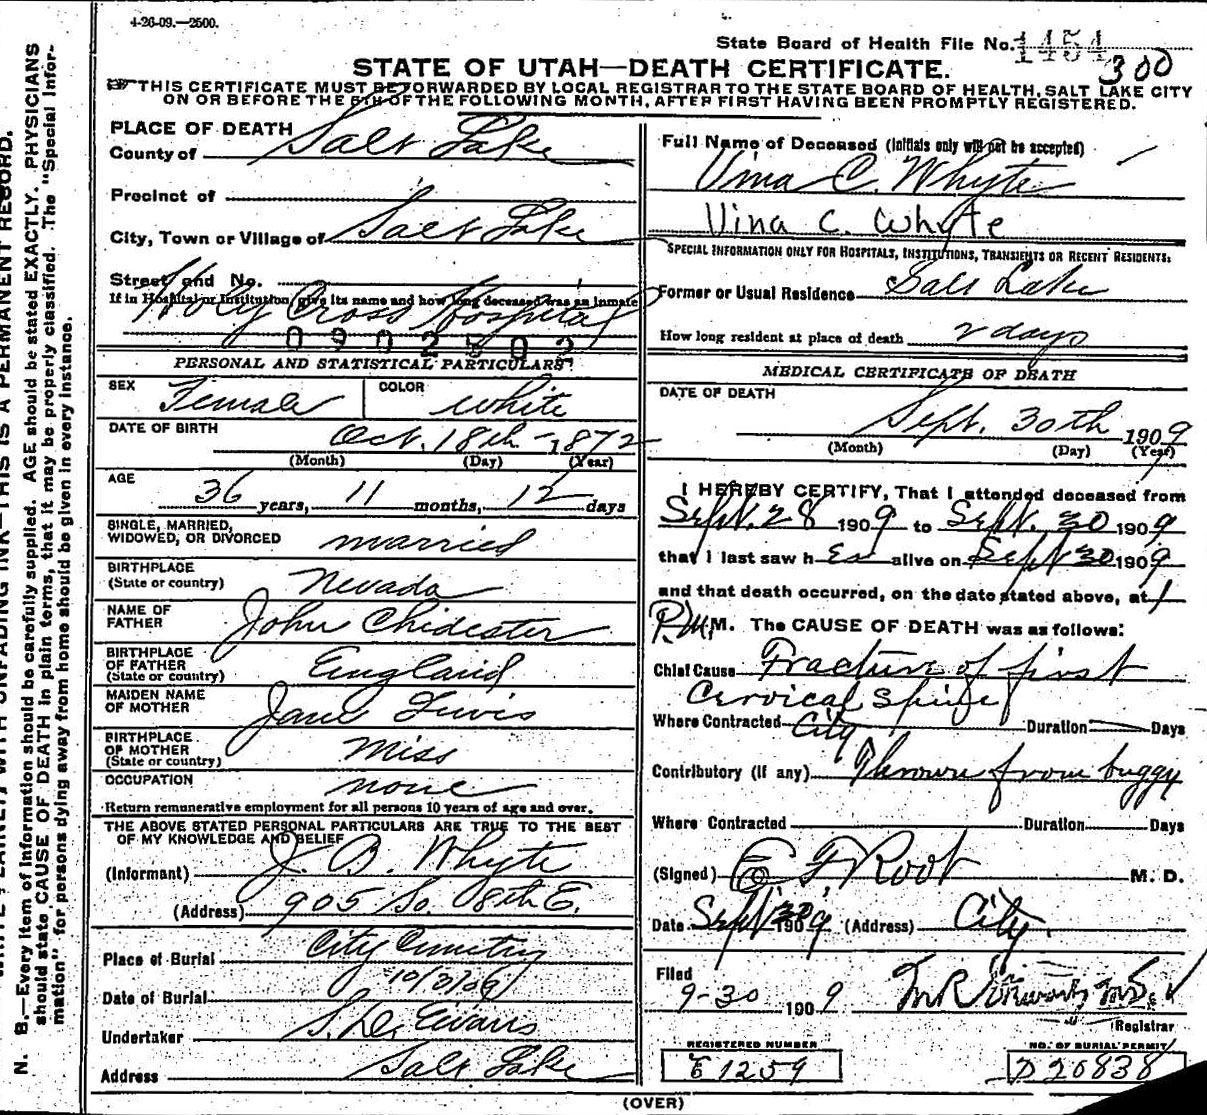 4-26-09.—2500.
State Board of Health File No. 1454
300
STATE OF UTAH—DEATH CERTIFICATE.
THIS CERTIFICATE MUST BE FORWARDED BY LOCAL REGISTRAR TO THE STATE BOARD OF HEALTH, SALT LAKE CITY
ON OR BEFORE THE 5TH OF THE FOLLOWING MONTH, AFTER FIRST HAVING BEEN PROMPTLY REGISTERED.
PLACE OF DEATH
County of Salt Lake
Precinct of
City, Town or Village of Salt Lake
Street and No.
If in Hospital or Institution, give its name and how long deceased was an inmate
Holy Cross Hospital
0902502
PERSONAL AND STATISTICAL PARTICULARS
SEX Female COLOR White
DATE OF BIRTH Oct. 18th - 1872
(Month) (Day) (Year)
AGE 36 years, 11 months, 12 days
SINGLE, MARRIED,
WIDOWED, OR DIVORCED married
BIRTHPLACE
(State or country) Nevada
NAME OF
FATHER John Chidester
BIRTHPLACE
OF FATHER
(State or country) England
MAIDEN NAME
OF MOTHER Jane
BIRTHPLACE
OF MOTHER
(State or country) Miss
OCCUPATION none
Return remunerative employment for all persons 10 years of age and over.
THE ABOVE STATED PERSONAL PARTICULARS ARE TRUE TO THE BEST
OF MY KNOWLEDGE AND BELIEF
(Informant) J. B. Whyte
(Address) 905 So. 8th E.
Place of Burial City Cemetry
Date of Burial
Undertaker S. D. Evans
Address Salt Lake
Full Name of Deceased (Initials only will not be accepted)
Vina C. Whyte
Vina C. Whyte
SPECIAL INFORMATION ONLY FOR HOSPITALS, INSTITUTIONS, TRANSIENTS OR RECENT RESIDENTS:
Former or Usual Residence Salt Lake
How long resident at place of death 2 days
MEDICAL CERTIFICATE OF DEATH
DATE OF DEATH
Sept. 30th 1909
(Month) (Day) (Year)
I HEREBY CERTIFY, That I attended deceased from
Sept. 28 1909 to Sept. 30 1909
that I last saw h er alive on Sept 30 1909
and that death occurred, on the date stated above, at 1
P.M. M. The CAUSE OF DEATH was as follows:
Chief Cause Fracture of first
Cervical Spine
Where Contracted City Duration Days
Contributory (if any) Thrown from buggy
Where Contracted Duration Days
(Signed) E F Root M. D.
Date Sept 30 1909 (Address) City.
Filed
9-30 1909
Registrar
REGISTERED NUMBER
E1259
NO. OF BURIAL PERMIT
D20838
(OVER)
N. B.—Every item of information should be carefully supplied. AGE should be stated EXACTLY. PHYSICIANS
should state CAUSE OF DEATH in plain terms, that it may be properly classified. The "Special Infor-
mation" for persons dying away from home should be given in every instance.